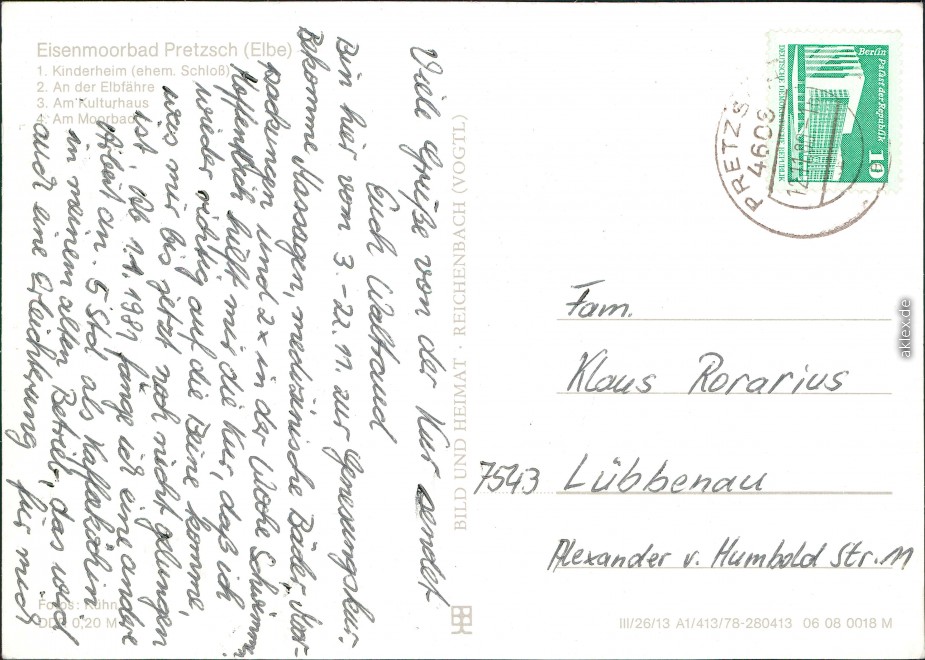 Eisenmoorbad Pretzsch (Elbe)
1. Kinderheim (ehem. Schloß)
2. An der Elbfähre
3. Am Kulturhaus
4. Am Moorbad
Viele Grüße von der Kur sendet
Euch Waltraud
Bin hier vom 3.-22.11. zur Genesungskur.
Bekomme Massagen, medizinische Bäder, Moor-
packungen und 2x in der Woche Schwimmen.
Hoffentlich hilft mir die Kur, daß ich
wieder richtig auf die Beine komme,
was mir bis jetzt noch nicht gelungen
ist. Ab 1.1.1981 fange ich eine andere
Arbeit an. 5 Std. als Kaffeeköchin
in meinem alten Betrieb, das wird
auch eine Erleichterung für mich
Fotos: Kühn
DDR 0,20 M
BILD UND HEIMAT · REICHENBACH (VOGTL)
Berlin
Palast der Republik
DEUTSCHE DEMOKRATISCHE REPUBLIK
10
PRETZS
4609
Fam.
Klaus Rorarius
7543 Lübbenau
Alexander v. Humbold Str. 11
III/26/13 A1/413/78-280413 06 08 0018 M
aklex.de